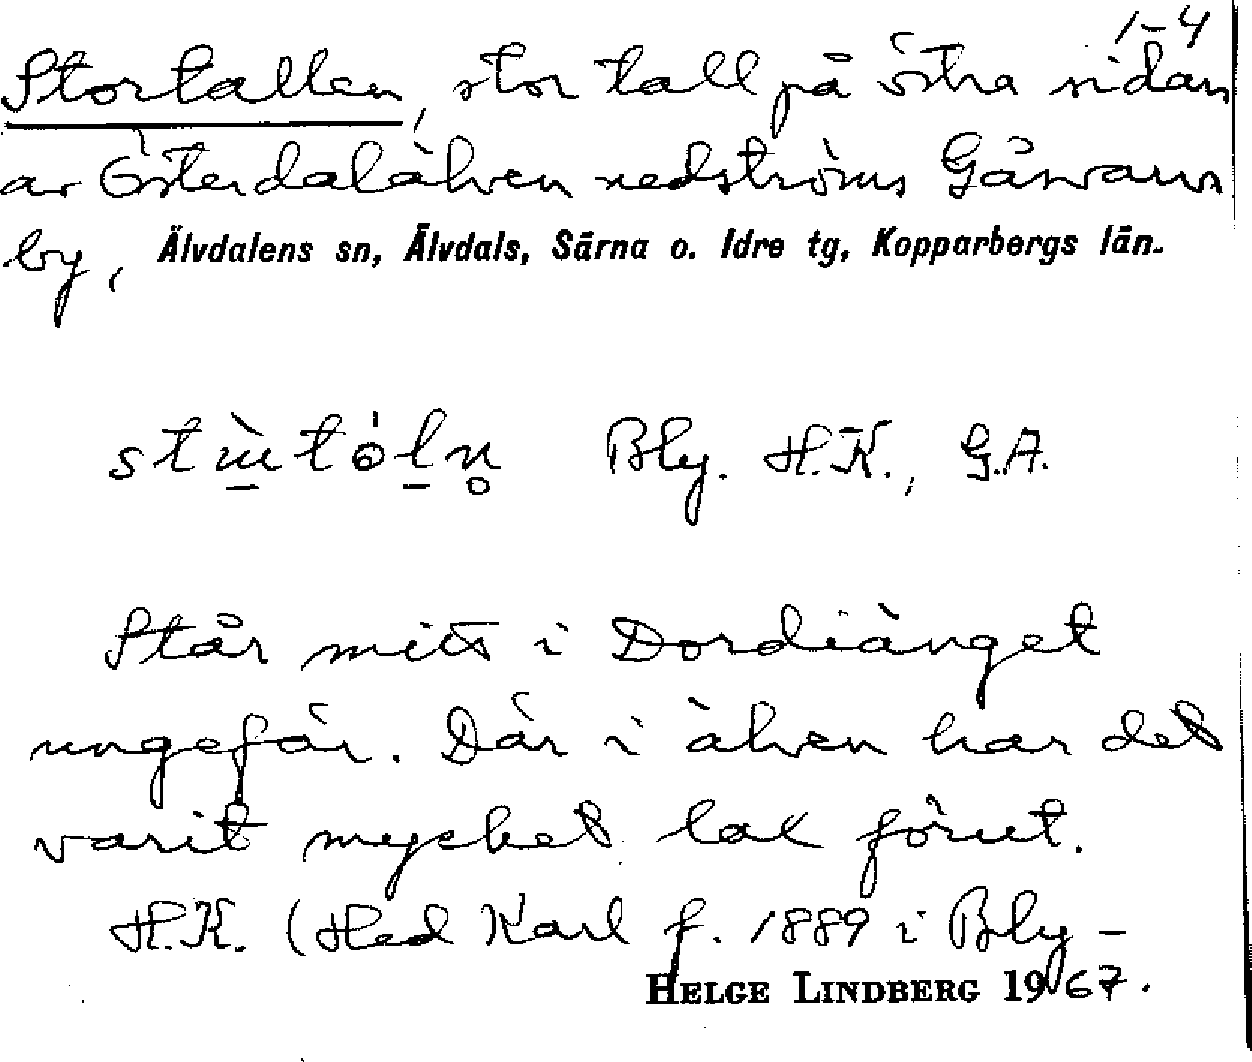 1-4
Stortallen, stor tall på östra sidan
av Österdalälven nedströms Gåsvarvs
by, Älvdalens sn, Älvdals, Särna o. Idre tg, Kopparbergs län.
Bly. H.K., G.A.
Står mitt i Dordiänget
ungefär. Där i älven har det
varit mycket lax förut.
H.K. (Hed Karl f. 1889 i Bly-
HELGE LINDBERG 1967.